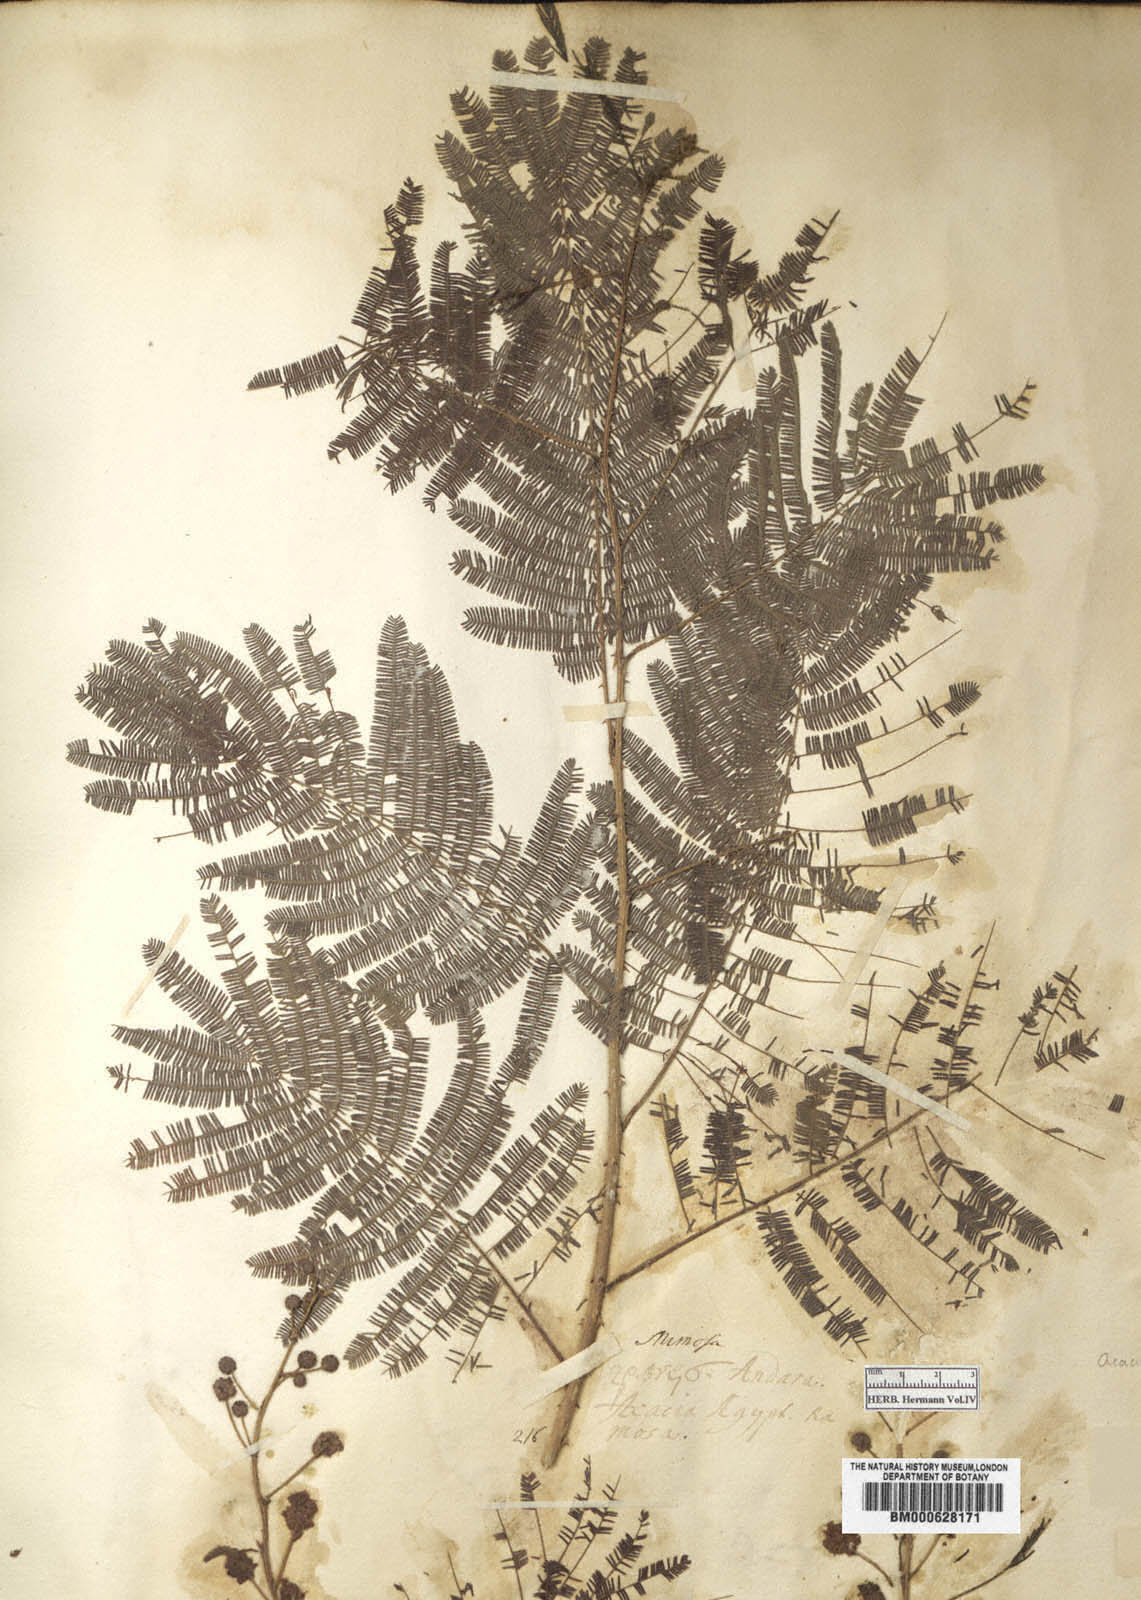 Mimosa
Andara.
Acacia Ægypt. Ra
mosa.
216
mm 1 2 3
HERB. Hermann Vol.IV
THE NATURAL HISTORY MUSEUM,LONDON
DEPARTMENT OF BOTANY
BM000628171